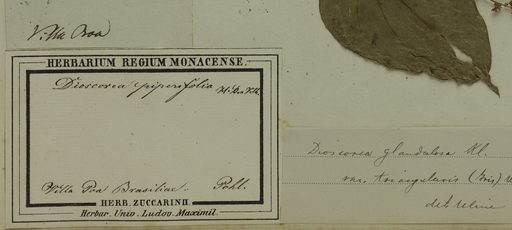 Villa Boa
HERBARIUM REGIUM MONACENSE.
Dioscorea piperifolia
Villa Boa Brasiliae. Pohl.
HERB. ZUCCARINII
Herbar. Univ. Ludov. Maximil.
Dioscorea glandulosa Kl.
var. triangularis (Gris)
det. Uline